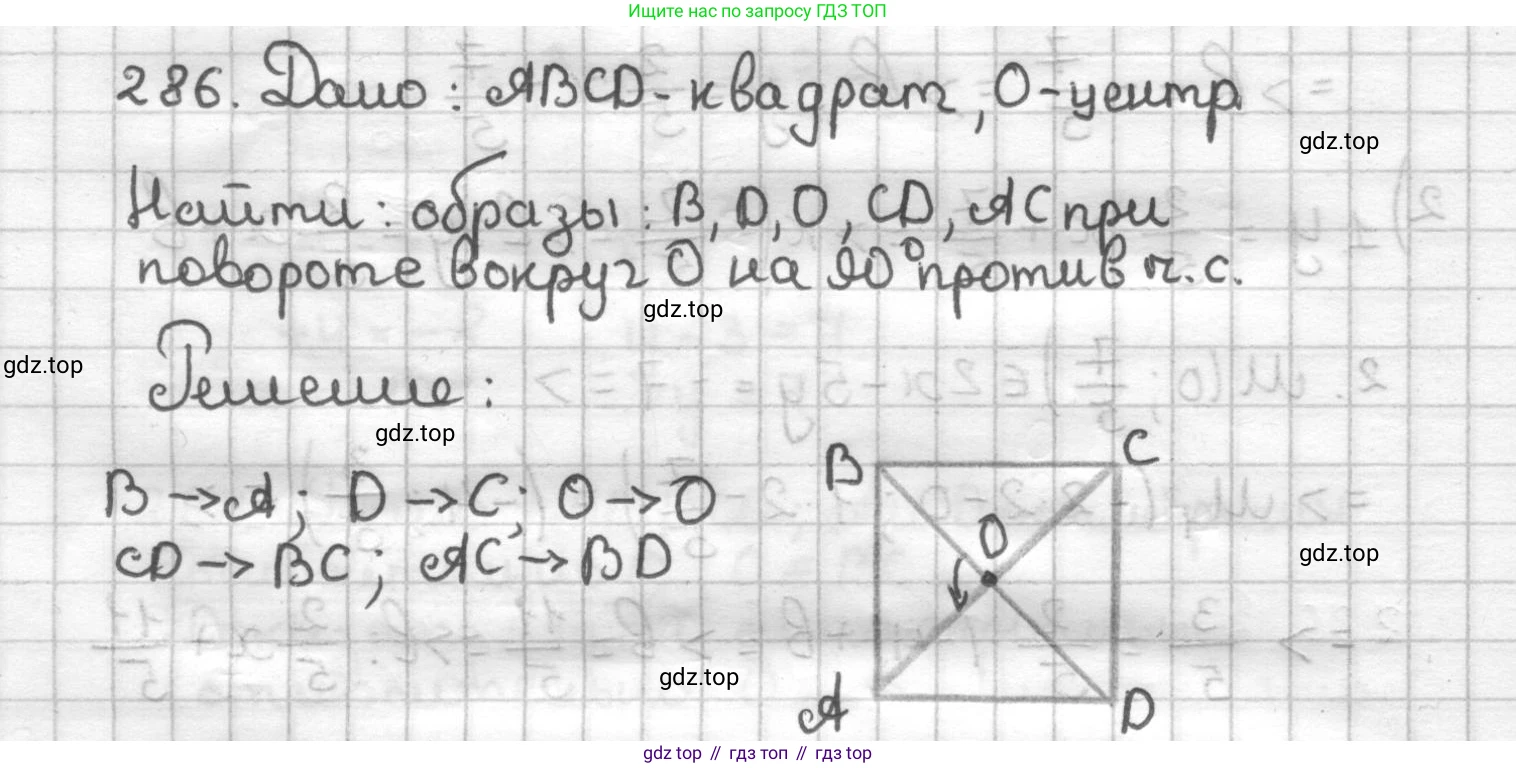 Ищите нас по запросу ГДЗ ТОП
286. Дано: ABCD - квадрат, O - центр
gdz.top
Найти: образы: B, D, O, CD, AC при
повороте вокруг O на 90° против ч.с.
gdz.top
gdz.top
Решение:
gdz.top
B → A; D → C; O → O
CD → BC; AC → BD
B
C
O
gdz.top
gdz.top
A
D
gdz top // гдз топ // гдз top